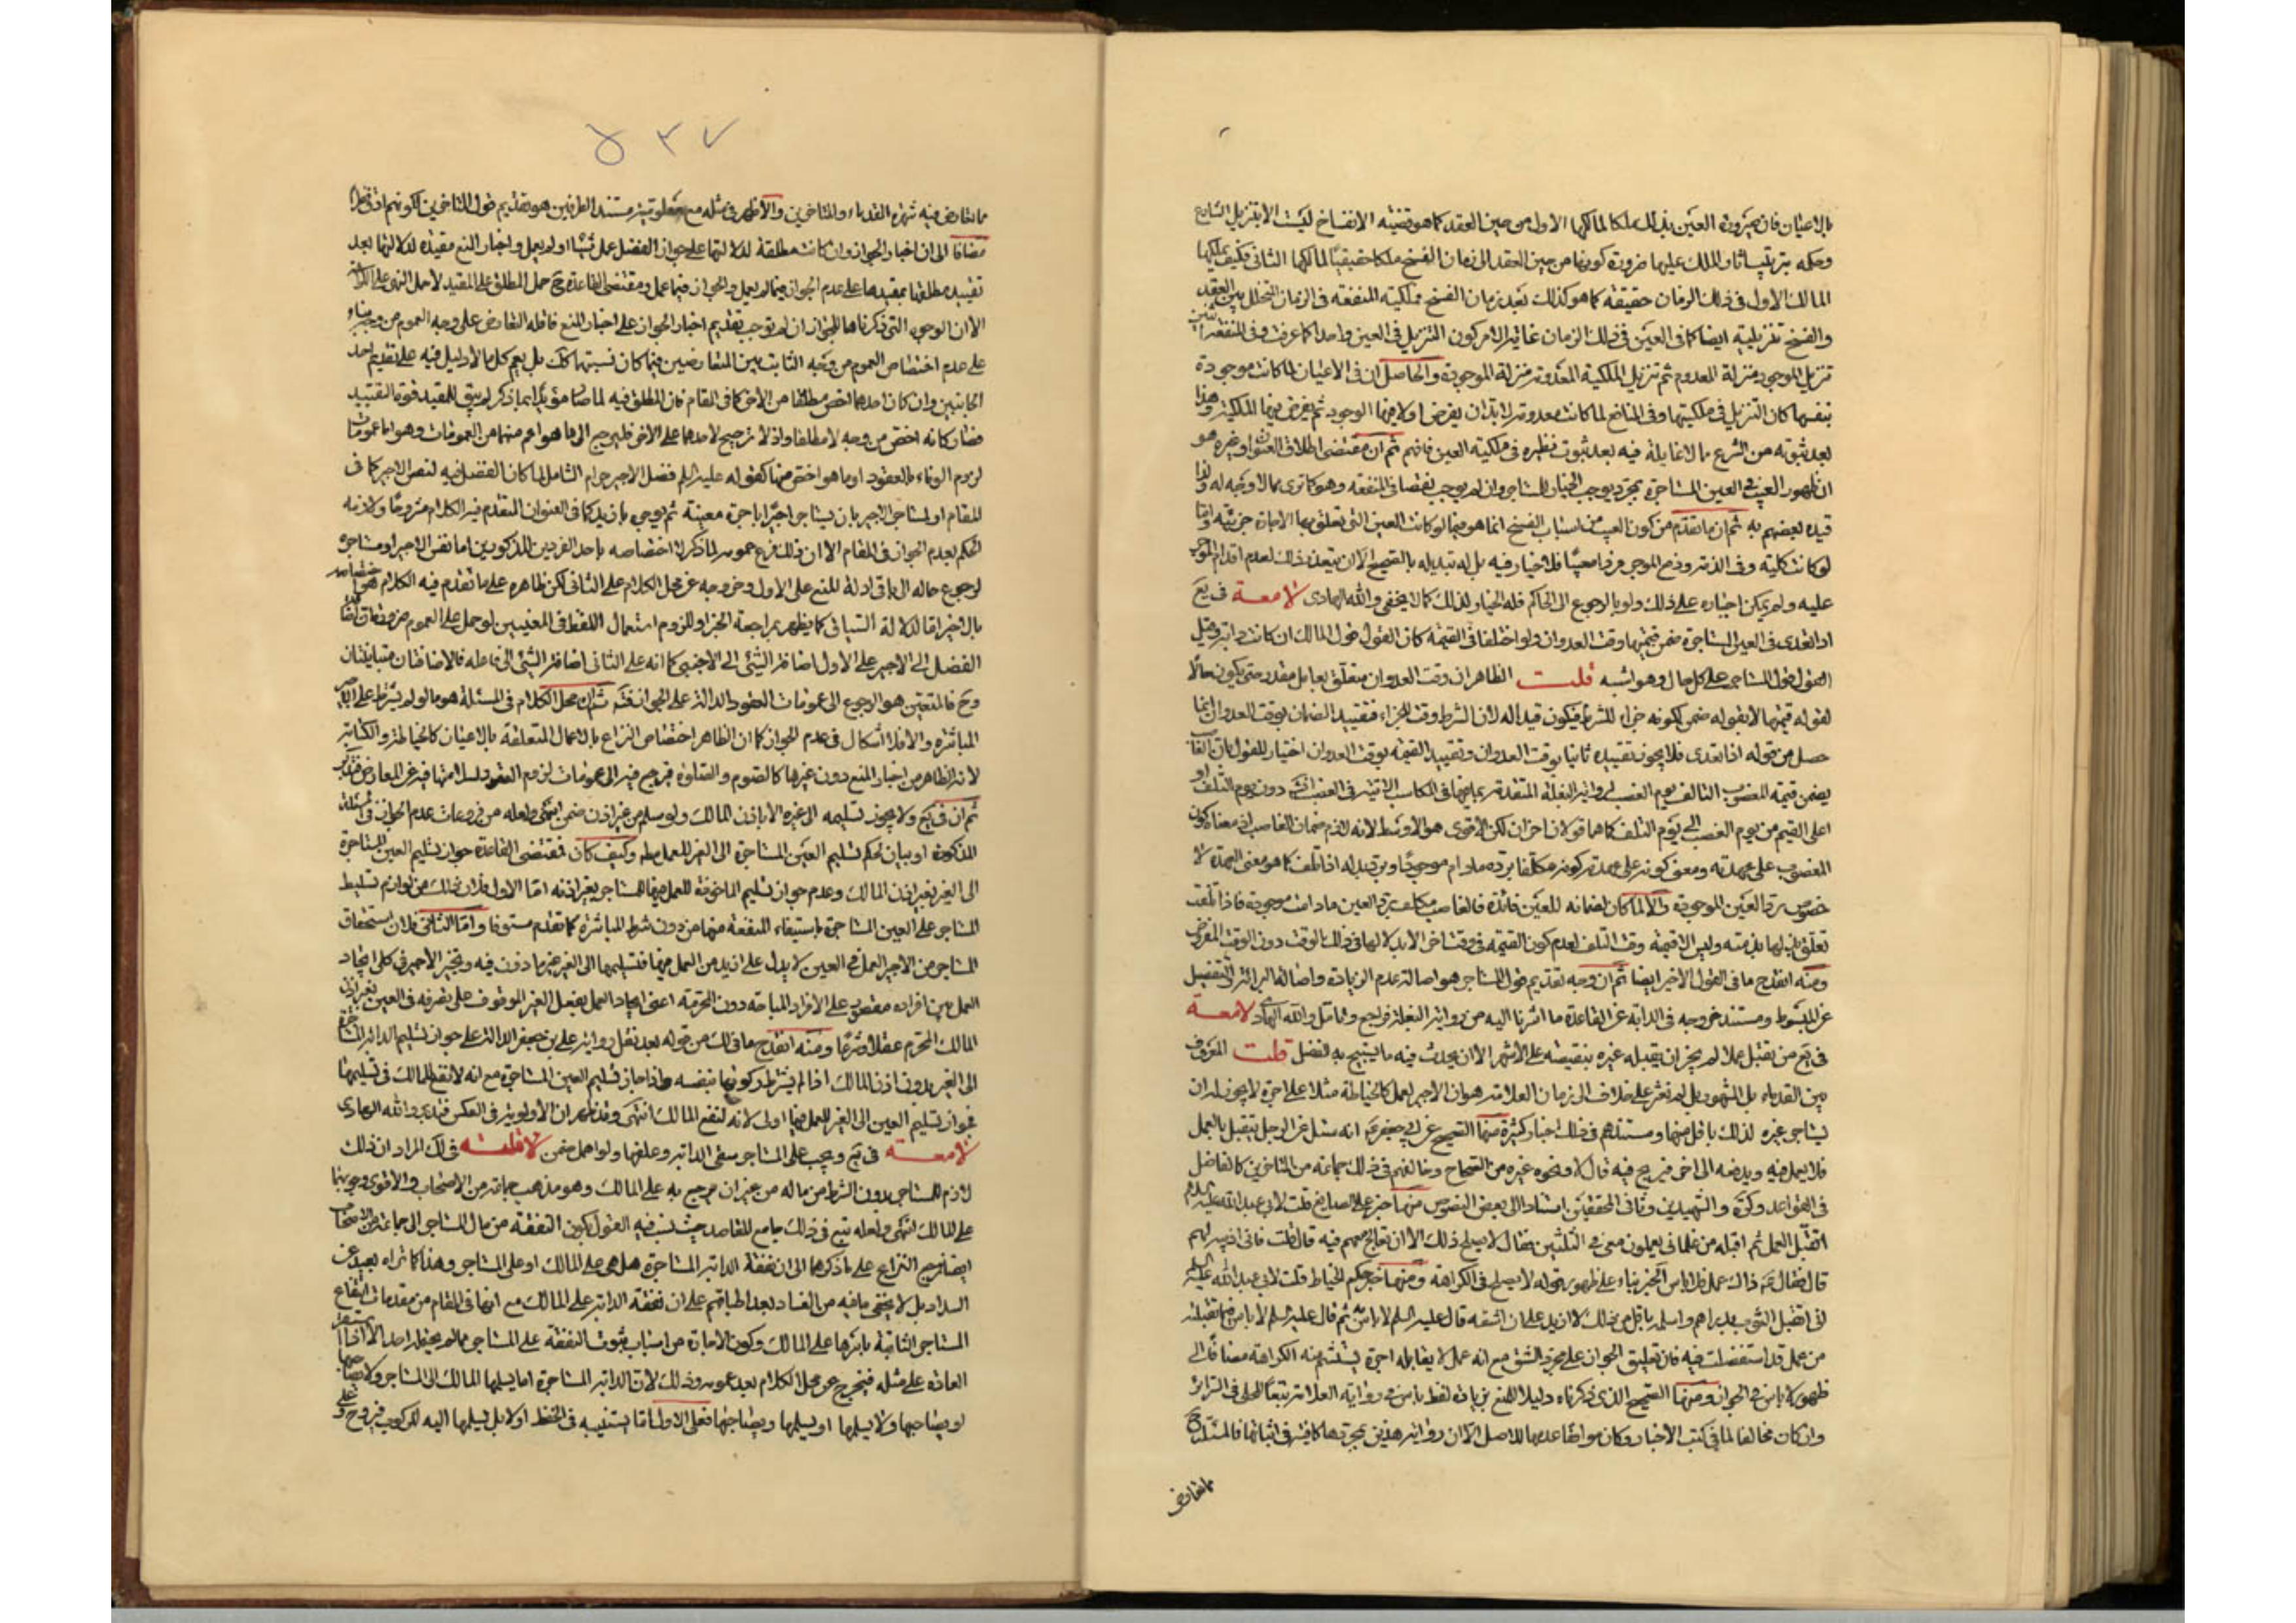 بالاعيان فان صيرورة العين بذلك ملكا لمالكها الاول من حين العقد كما هو قضية الانفساخ ليست الا بتنزيل الشارع
وحكمه بترتيب اثار الملك عليها ضرورة كونها من حين العقد الى زمان الفسخ ملكا حقيقيا لمالكها الثانى فكيف يملكها
المالك الاول فى ذلك الزمان حقيقة كما هو كذلك بعد زمان الفسخ فملكية المنفعة فى الزمان المتخلل بين العقد
والفسخ تنزيلية ايضا كما فى العين فى ذلك الزمان غاية الامر كون التنزيل فى العين واحدا كما عرفت وفى المنفعة
تنزيل الموجود منزلة المعدوم ثم تنزيل الملكية المعدومة منزلة الموجودة والحاصل ان فى الاعيان لما كانت موجودة
بنفسها كان التنزيل فى ملكيتها وفى المنافع لما كانت معدومة لابد ان يفرض اولا فيها الوجود ثم يفرض فيها الملكية وهذا
بعد ثبوته من الشرع مالا غايلة فيه بعد ثبوت نظيره فى ملكية العين فافهم ثم ان مقتضى اطلاق العنوان وغيره هو
ان ظهور العيب فى العين المستاجرة بمجرده يوجب الخيار للمستاجر وان لم يوجب نقصا فى المنفعة وهو كما ترى مما لا وجه له ولذا
قيده بعضهم به ثم ان ما تقدم من كون العيب من اسباب الفسخ انما هو فيما لو كانت العين التى تعلق بها الاجارة جزئية واما
لو كانت كلية وفى الذمة ودفع الموجر فردا معيبا فلا خيار فيه بل له تبديله بالصحيح الا ان يتعذر ذلك لعدم اقدام الموجر
عليه ولم يمكن اجباره على ذلك ولو بالرجوع الى الحاكم فله الخيار لذلك كما لا يخفى والله الهادى لامعة فى يع
اذا تعدى فى العين المستاجرة ضمن قيمتها وقت العدوان ولو اختلفا فى القيمة كان القول قول المالك ان كانت دابة وقيل
القول قول المستاجر على كل حال وهو اشبه قلت الظاهر ان وقت العدوان متعلق بعامل مقدر حتى يكون حالا
لقوله قيمتها لا بقوله ضمن لكونه جزاء للشرط فيكون قيدا له لان الشرط وقت الجزاء فتقييد الضمان بوقت العدوان انما
حصل من قوله اذا تعدى فلا يجوز تقييده ثانيا بوقت العدوان وتقييد القيمة بوقت العدوان اختيار للقول بان الغاصب
يضمن قيمة المغصوب التالف يوم الغصب لرواية البغلة المتقدمة دون يوم التلف او
اعلى القيم من يوم الغصب الى يوم التلف كما هما قولان اخران لكن الاقوى هو الاوسط لانه لازم ضمان الغاصب اذ معناه كون
المغصوب على عهدته ومعنى كونه على عهدته كونه مكلفا برده مادام موجودا وبرد بدله اذا تلف كما هو معنى العهدة لا
خصوص رد العين الموجودة والا لما كان لضمانه للعين فائدة فالغاصب مكلف برد العين مادامت موجودة فاذا تلفت
تعلق بدلها بذمته وليس الا قيمة وقت التلف لعدم كون القيمة فى وقت اخر الا بدلا لها فى ذلك الوقت دون الوقت المفروض
ومنه انقدح ما فى القول الاخير ايضا ثم ان وجه تقديم قول المستاجر هو اصالة عدم الزيادة واصالة البرائة والتفصيل
عن المبسوط ومستند خروجه فى الدابة عن القاعدة ما اشرنا اليه من رواية البغلة فراجع وتامل والله الهادى لامعة
فى يع من تقبل عملا لم يجز ان يقبله غيره بنقيصة على الاشهر الا ان يحدث فيه ما يستبيح به الفضل قلت المعروف
بين القدماء بل المشهور بل لم نعثر على خلاف الى زمان العلامة هو ان الاجير لعمل كالخياطة مثلا على اجرة لا يجوز له ان
يستاجر غيره لذلك باقل منها ومستندهم فى ذلك اخبار كثيرة منها الصحيح عن ابى جعفر ع انه سئل عن الرجل يتقبل بالعمل
فلا يعمل فيه ويدفعه الى اخر فيربح فيه قال لا ونحوه غيره من الصحاح وخالفهم فى ذلك جماعة من المتاخرين كالفاضل
فى القواعد وكره والشهيدين وثانى المحققين استنادا الى بعض النصوص منها خبر على الصايغ قلت لابى عبد الله عليه السلام
اتقبل العمل ثم اقبله من غلمانى يعملون معى فى الثلثين فقال لا يصلح ذلك الا ان تعالج معهم فيه قال قلت فانى اذيبه لهم
قال فقال ع ذاك عمل فلا باس الخبر بناء على ظهور قوله لا يصلح فى الكراهة ومنها خبر حكم الخياط قلت لابى عبد الله عليه السلم
انى اتقبل الثوب بدراهم واسلمه باقل من ذلك لا ازيد على ان اشقه قال عليه السلم لا باس به ثم قال عليه السلم لا باس فيما تقبلت
من عمل قد استفضلت فيه فان تعليق الجواز على مجرد الشق مع انه عمل لا يقابله اجرة يستشم منه الكراهة مضافا الى
ظهور لا باس فى الجواز ومنها الصحيح الذى ذكرناه دليلا للمنع بزيادة لفظ باس فى رواية العلامة تبعا للحلى فى السرائر
وان كان مخالفا لما فى كتب الاخبار وكان موافقا عدمها للاصل الا ان رواية هذين بمجردها كافية فى اثباتها فالمسئلة ح
مما تعارض
۵۳۷
مما تعارض فيه شهرة القدماء والمتاخرين والاظهر فى مثله مع معلومية مستند الطرفين هو تقديم قول المتاخرين لكونهم ادق نظرا
مضافا الى ان اخبار الجواز وان كانت مطلقة لدلالتها على جواز الفضل عمل شيئا او لم يعمل واخبار المنع مقيدة لدلالتها بعد
تقييد مطلقها بمقيدها على عدم الجواز فيما لم يعمل والجواز فيما عمل ومقتضى القاعدة ح حمل المطلق على المقيد لا حمل النهى على الكراهة
الا ان الوجوه التى ذكرناها للجواز ان لم توجب تقديم اخبار الجواز على اخبار المنع فاقله التعارض على وجه العموم من وجه بناء
على عدم اختصاص العموم من وجه الثابت بين المتعارضين فيما كان نسبتهما كك بل يعم كل ما لا دليل فيه على تقديم احد
الجانبين وان كان احدهما اخص مطلقا من الاخر كما فى المقام فان المطلق فيه لما صار مؤيدا بما ذكر لم يبق للمقيد قوة التقييد
فصار كانه اخص من وجه لا مطلقا واذ لا ترجيح لاحدهما على الاخر فليرجع الى ما هو اعم منهما من العمومات وهو اما عمومات
لزوم الوفاء بالعقود او ما هو اخص منها كقوله عليه السلم فضل الاجير حرام الشامل لما كان الفضل فيه لنفس الاجير كما فى
المقام او لمستاجر الاجير بان يستاجر اجيرا باجرة معينة ثم يوجره بازيد كما فى العنوان المتقدم فيه الكلام مشروحا ولازمه
الحكم بعدم الجواز فى المقام الا ان ذلك فرع عمومه لما ذكر لا اختصاصه باحد الفردين المذكورين اما نفس الاجير او مستاجره
لرجوع حاله الى باقى ادلة المنع على الاول وخروجه عن محل الكلام على الثانى لكن ظاهره على ما تقدم فيه الكلام هو اختصاصه
بالاخير اما لدلالة السياق كما يظهر بمراجعة الخبر او للزوم استعمال اللفظ فى المعنيين لو حمل على العموم ضرورة ان اضافة
الفضل الى الاجير على الاول اضافة الشئ الى الاجنبى كما انه على الثانى اضافة الشئ الى فاعله فالاضافتان متباينتان
وح فالمتعين هو الرجوع الى عمومات العقود الدالة على الجواز فتم ثم ان محل الكلام فى المسئلة هو ما لو لم يشترط على الاجير
المباشرة والا فلا اشكال فى عدم الجواز كما ان الظاهر اختصاص النزاع بالاعمال المتعلقة بالاعيان كالخياطة والكتابة
لانه الظاهر من اخبار المنع دون غيرها كالصوم والصلوة فيرجع فيه الى عمومات لزوم العقود لسلامتها فيه عن المعارض فتدبر
ثم ان فى يع ولا يجوز تسليمه الى غيره الا باذن المالك ولو سلم من غير اذن ضمن انتهى ولعله من فروعات عدم الجواز فى المسئلة
المذكورة او بيان لحكم تسليم العين المستاجرة الى الغير للعمل وكيف كان فمقتضى القاعدة جواز تسليم العين المستاجرة
الى الغير بغير اذن المالك وعدم جواز تسليم الماخوذة للعمل فيها للمستاجر بغير اذنه اما الاول فلان ذلك من لوازم تسليط
المستاجر على العين المستاجرة باستيفاء المنفعة منها من دون شرط المباشرة كما تقدم مستوفا واما الثانى فلان استحقاق
المستاجر من الاجير العمل فى العين لا يدل على ازيد من العمل فيها فتسليمها الى الغير غير ماذون فيه وتخير الاجير فى كلى ايجاد
العمل بين افراده مقصور على الافراد المباحة دون المحرمة اعنى ايجاد العمل بفعل الغير الموقوف على تصرفه فى العين بغير اذن
المالك المحرم عقلا وشرعا ومنه انقدح ما فى لك من قوله بعد نقل رواية على بن جعفر الدالة على جواز تسليم الدابة المستاجرة
الى الغير بدون اذن المالك اذا لم يشترط ركوبها بنفسه واذا جاز تسليم العين المستاجرة مع انه لا نفع للمالك فى تسليمها
فجواز تسليم العين الى الغير للعمل فيها اولى لانه لنفع المالك انتهى وقد ظهر ان الاولوية فى العكس فتدبر والله الهادى
لامعة فى يع ويجب على المستاجر سقى الدابة وعلفها ولو اهمل ضمن قلت فى لك المراد ان ذلك
لازم للمستاجر بدون الشرط من ماله من غير ان يرجع به على المالك وهو مذهب جماعة من الاصحاب والاقوى وجوبها
على المالك انتهى ولعله تبع فى ذلك جامع المقاصد حيث نسب فيه القول بكون النفقة من مال المستاجر الى جماعة من الاصحاب
ايضا فمرجع النزاع على ما ذكرهما الى ان نفقة الدابة المستاجرة هل هى على المالك او على المستاجر وهذا كما تراه بعيد عن
السداد بل لا يخفى مافيه من الفساد بعد اطباقهم على ان نفقة الدابة على المالك مع انها فى المقام من مقدمات انتفاع
المستاجر الثابتة باسرها على المالك وكون الاجارة من اسباب ثبوت النفقة على المستاجر مما لم يحتمله احد الا اذا استقر
العادة على مثله فيخرج عن محل الكلام بعد عمومه وذلك لان الدابة المستاجرة اما يسلمها المالك الى المستاجر ولا يصاحبها
او يصاحبها ولا يسلمها او يسلمها ويصاحبها فعلى الاول اما يستنيبه فى الحفظ او لا بل يسلمها اليه للركوب فيروح وعلى